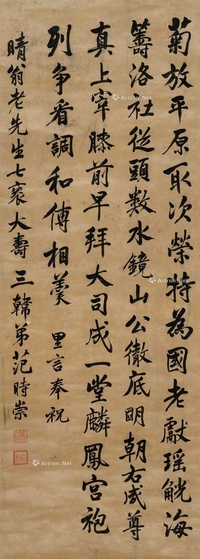 菊放平原取次榮特為國老獻瑤觥海
籌洛社從頭數水鏡山公徹底明朝右咸尊
真上宰膝前早拜大司成一堂麟鳳宮袍
列争看調和傅相羹 里言奉祝
晴翁老先生七袠大壽 三韓弟范時崇